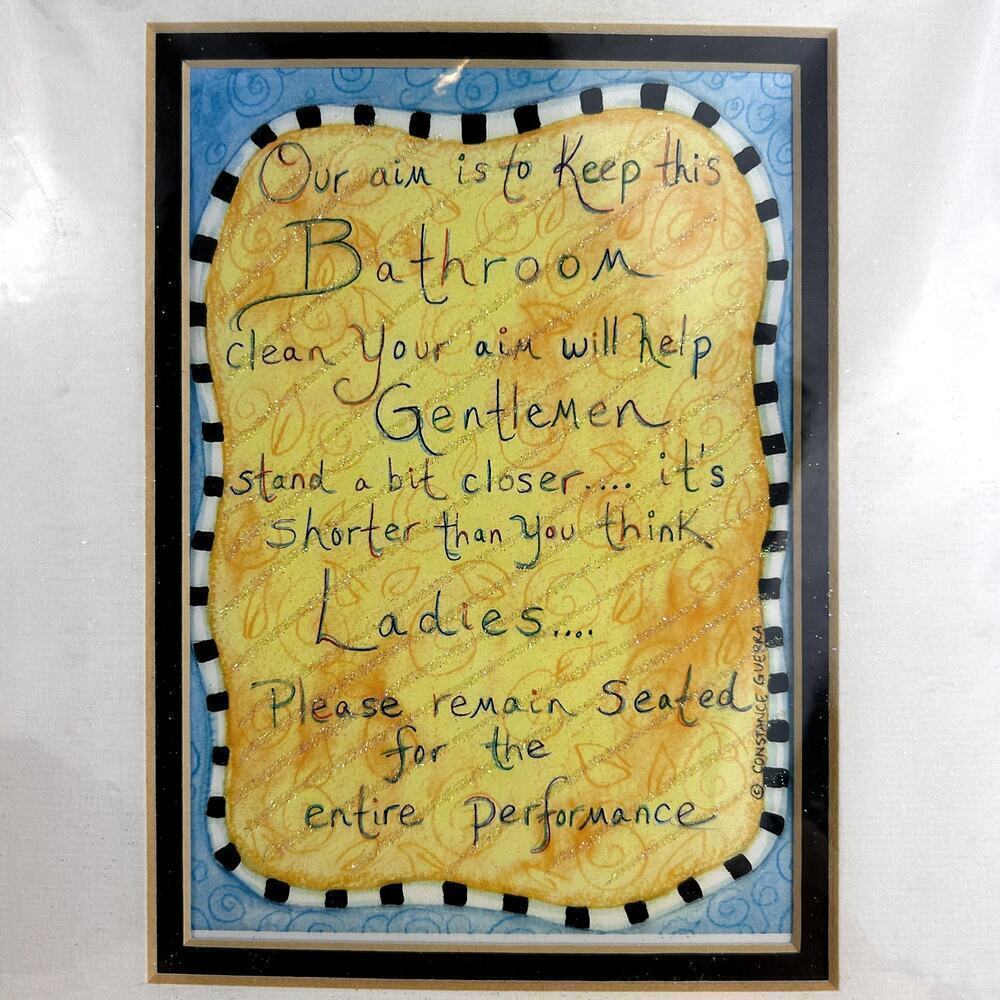 Our aim is to Keep this
Bathroom
clean Your aim will help
Gentlemen
stand a bit closer.... it's
shorter than You think
Ladies....
Please remain Seated
for the
entire performance
© CONSTANCE GUERRA